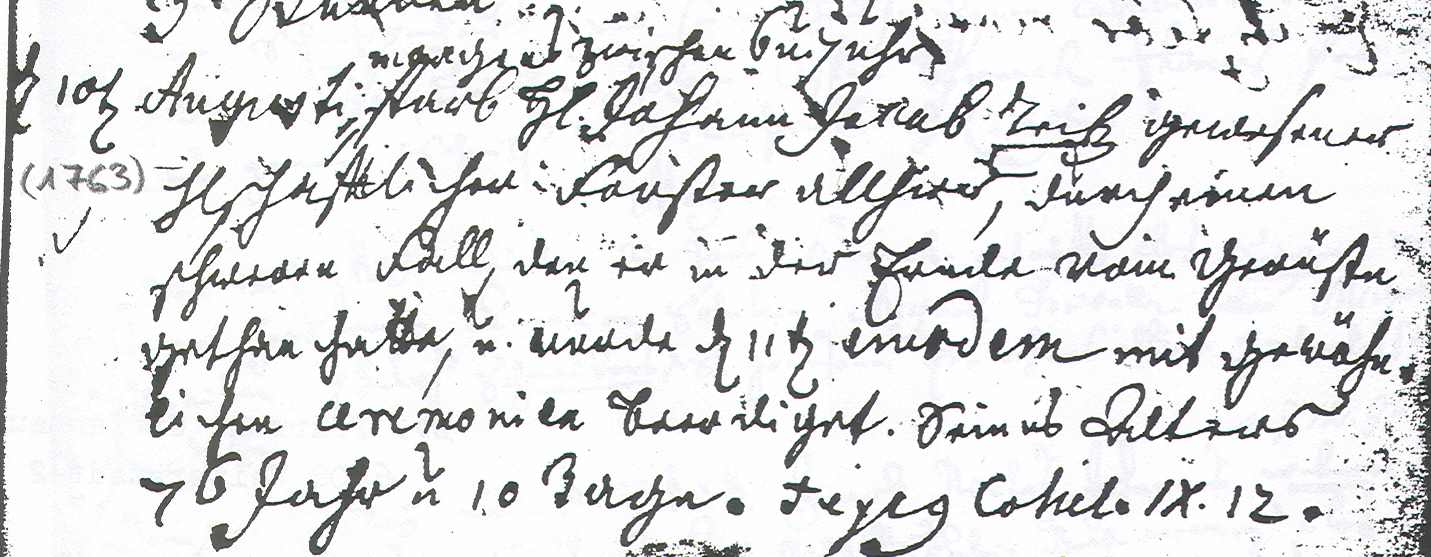 morgens zwischen 6 u. 7 uhr
d 10t Augusti, starb Hl. Johann Jacob gewesener
(1763) schafftlicher Förster allhier, durch einen
schweren Fall, den er in der Ernde vom Gerüste
gethan hatte, u. wurde d 11t eiusdem mit gewöhn-
lichen Ceremonien beerdiget. Seines Alters
76 Jahr u 10 Tage. Cohel. IX. 12.